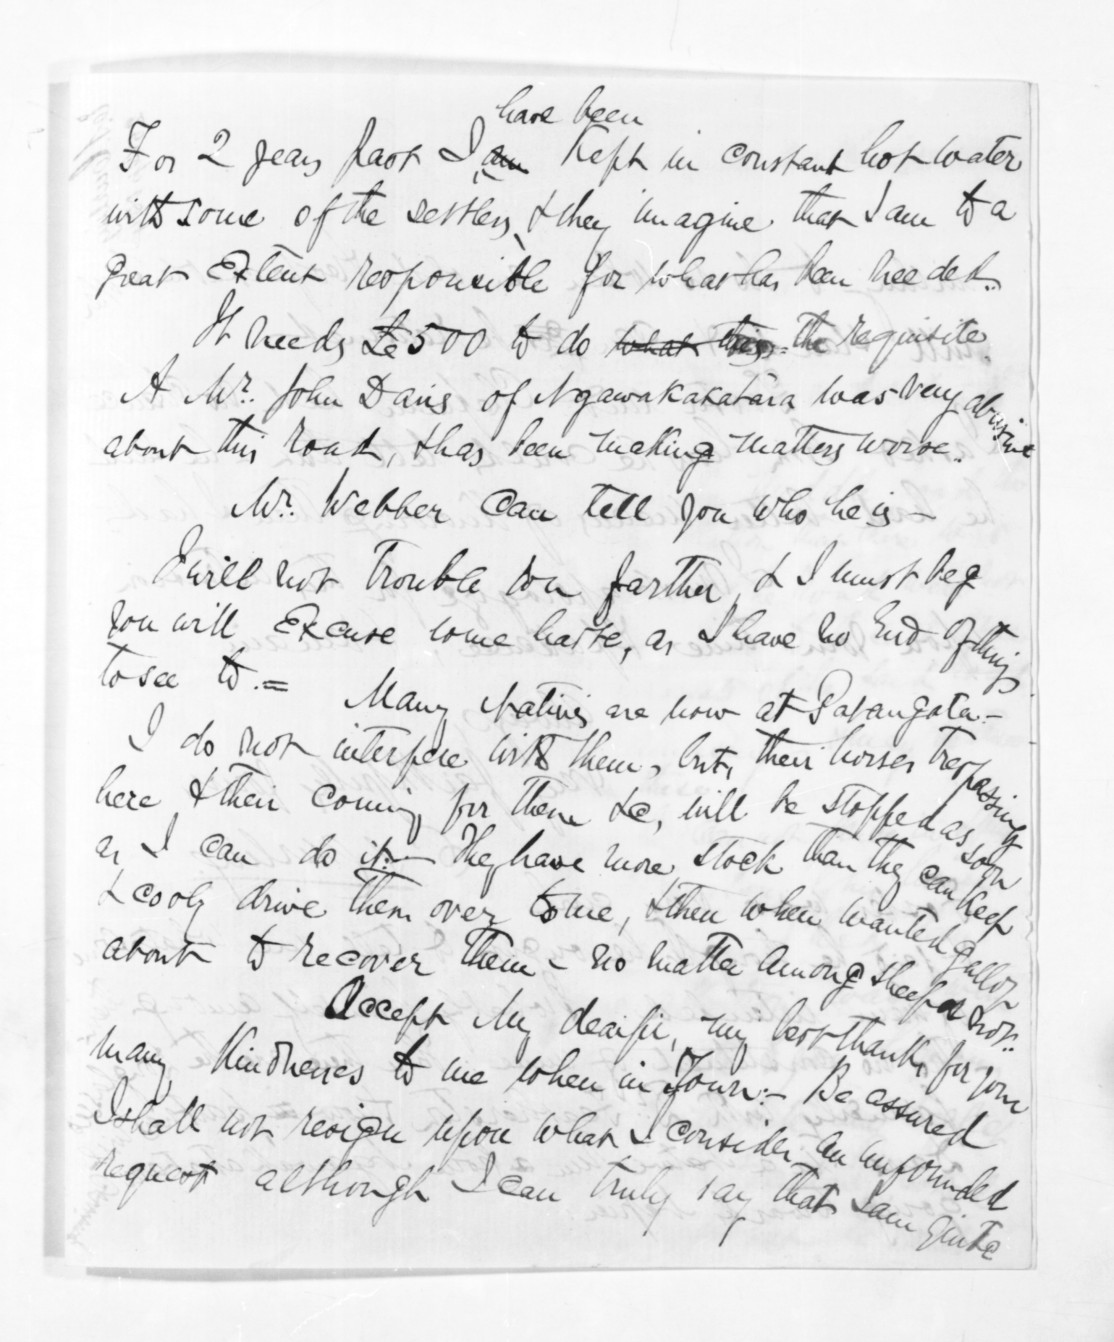 have been
For 2 years past I am Kept in constant hot water
with some of the settlers, & they imagine that I am to a
great Extent responsible for what has been needed.
It needs £500 to do what this the requisite.
A Mr. John Davis of Ngawakatatara was very abusive
about this road, & has been making matters worse.
Mr. Webber can tell you who he is –
I will not trouble you farther, & I must beg
you will Excuse some haste, as I have no End of things
to see to. = Many Natives are now at Patangata –
I do not interfere with them, but, their horses trespassing
here & their coming for them &c, will be stopped as soon
as I can do it. – They have more stock than they can Keep
& cooly drive them over to me, & then when wanted gallop
about to recover them – no matter among sheep or not.
Accept My dear sir, my best thanks for your
many Kindnesses to me when in Town. – Be assured
I shall not resign upon what I consider an unfounded
request although I can truly say that I am quite